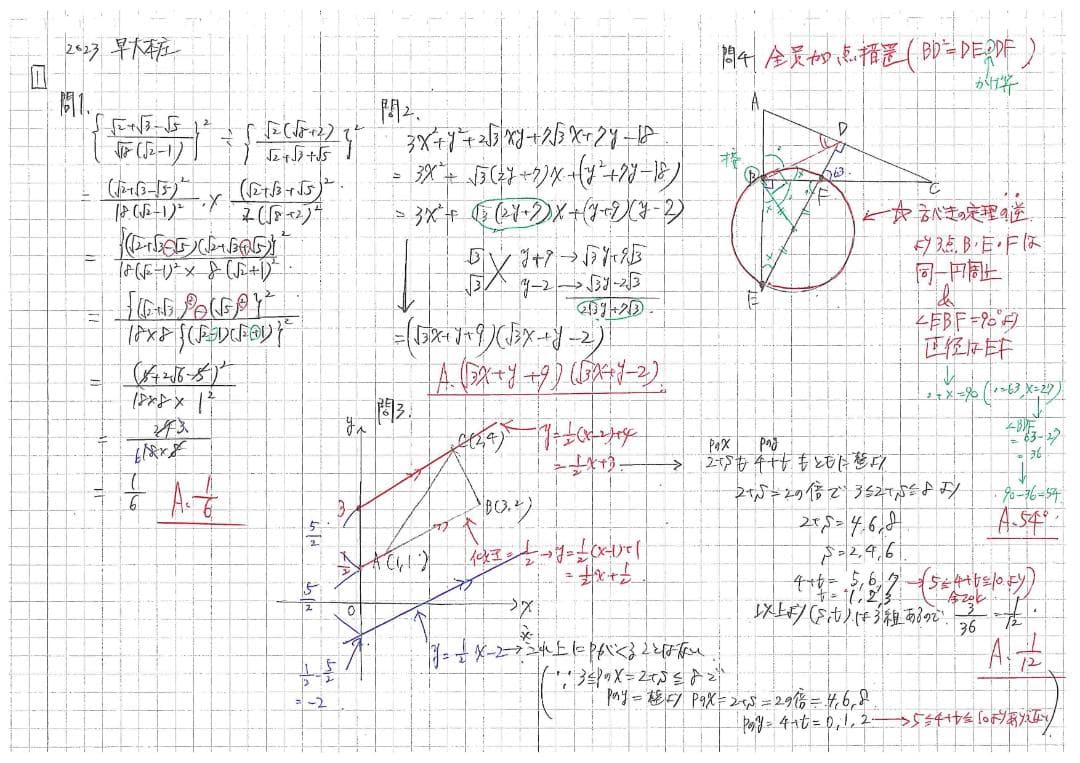 2023 早大本庄
1
問1.
{(√2+√3-√5)/(√18(√2-1))}² ÷ {√2(√8+2)/(√2+√3+√5)}²
= (√2+√3-√5)²/18(√2-1)² × (√2+√3+√5)²/2(√8+2)²
= {(√2+√3-√5)(√2+√3+√5)}²/18(√2-1)² × 8(√2+1)²
= {(√2+√3)² - (√5)²}²/18×8{(√2-1)(√2+1)}²
= (5+2√6-5)²/18×8×1²
= 1/6
A. 1/6
問2.
3x²+y²+2√3xy+7√3x+7y-18
= 3x²+√3(2y+7)x+(y²+7y-18)
= 3x²+√3(2y+7)x+(y+9)(y-2)
√3 y+9 → √3y+9√3
√3 y-2 → √3y-2√3
2√3y+7√3
=(√3x+y+9)(√3x+y-2)
A. (√3x+y+9)(√3x+y-2)
問3.
y
C(2,4)
y=1/2(x-2)+4
=1/2x+3
3
B(3,2)
5/2
1/2
A(1,1)
傾き=1/2→y=1/2(x-1)+1
=1/2x+1/2
5/2
0
x
y=1/2x-2→これ上にPがくることはない
1/2-5/2
=-2
(∵3≦Pのx=2+s≦8で
Pのy=整より Pのx=2+s=2の倍=4,6,8
Pのy=4+t=0,1,2→5≦4+t≦10より
Pのx Pのy
2+sも4+tもともに整より
2+s=2の倍で3≦2+s≦8より
2+s=4,6,8
s=2,4,6
4+t=5,6,7→(5≦4+t≦10より
t=1,2,3
以上より(s,t)は3組あるので 3/36=1/12
A. 1/12
問4 全員加点措置(BD²=DE・DF)
かけ算
A
D
接
B
F
C
E
☆方べきの定理の逆
より3点B・E・Fは
同一円周上
&
∠EBF=90°より
直径はEF
∠BDF
=63-27
=36
90-36=54
A. 54°